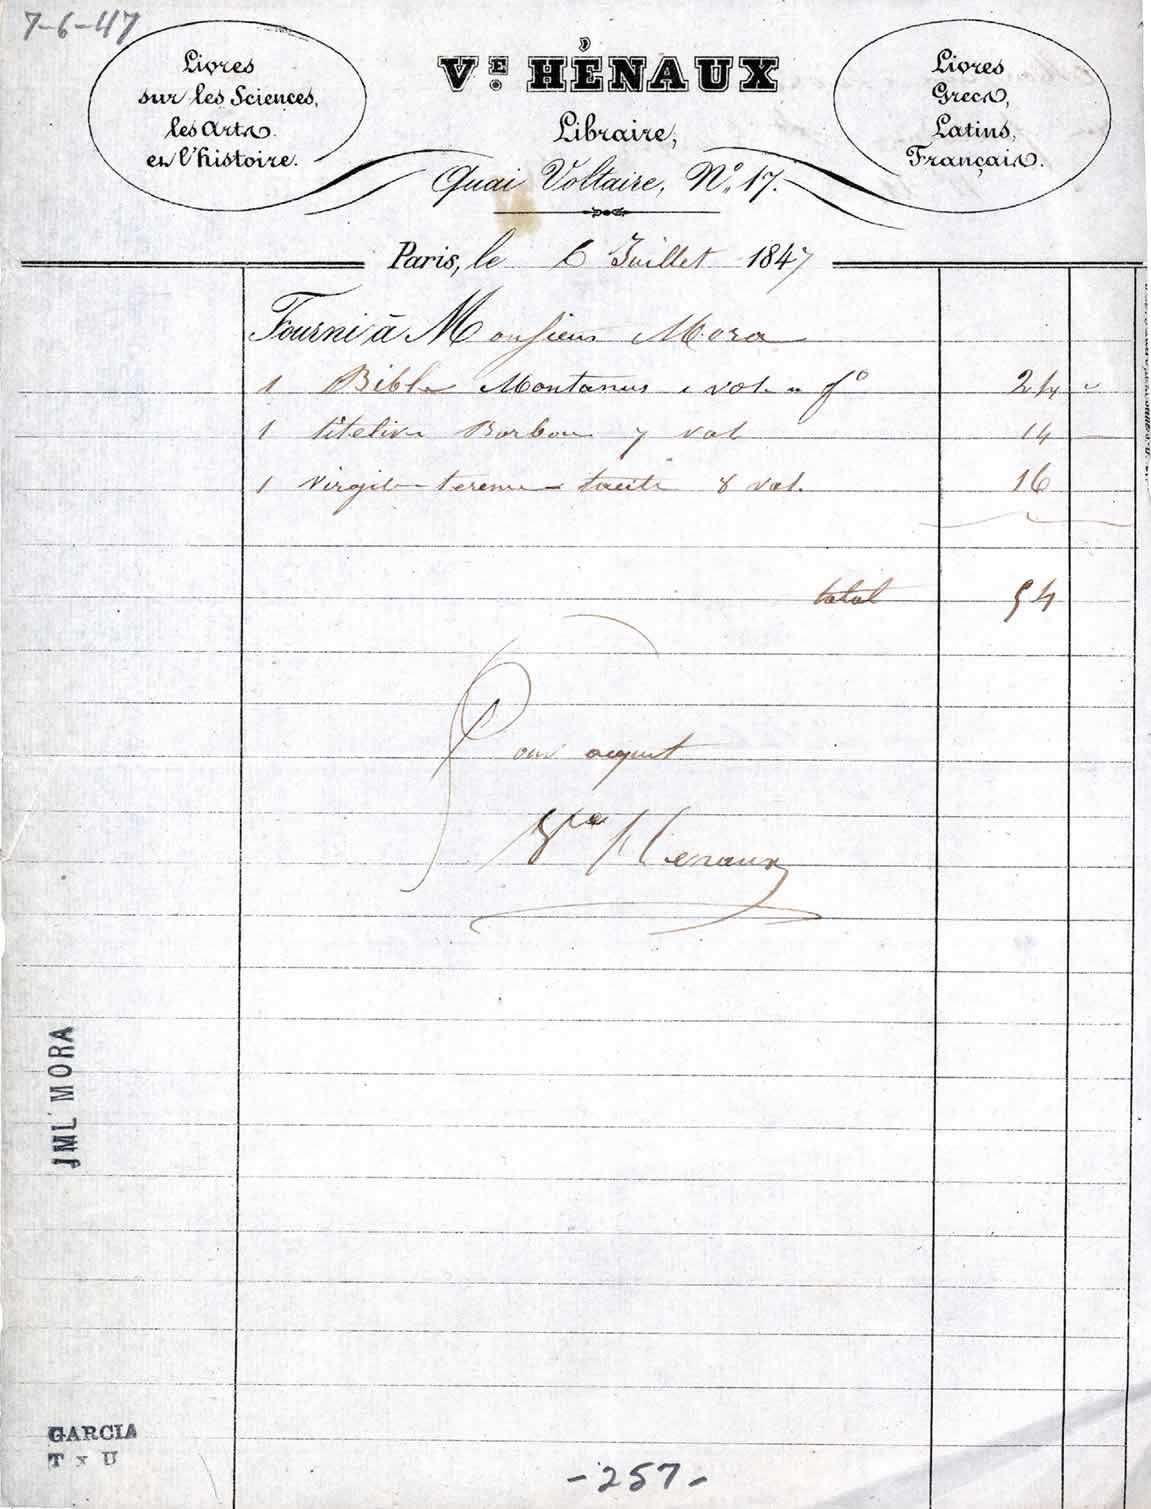 7-6-47
Livres
sur les Sciences,
les Arts
et l'histoire.
VE. HÉNAUX
Libraire,
Quai Voltaire, No. 17.
Livres
Grecs,
Latins,
Français.
Paris, le 6 Juillet 1847
Fourni à Monsieur Mora
1 Bible Montanus vol. fo 24
1 titelive Barbou 7 vol 14 —
1 virgile - terence - tacite 8 vol. 16
total 54
Pour acquit
Ve Henaux
JML MORA
GARCIA
T x U
-257-